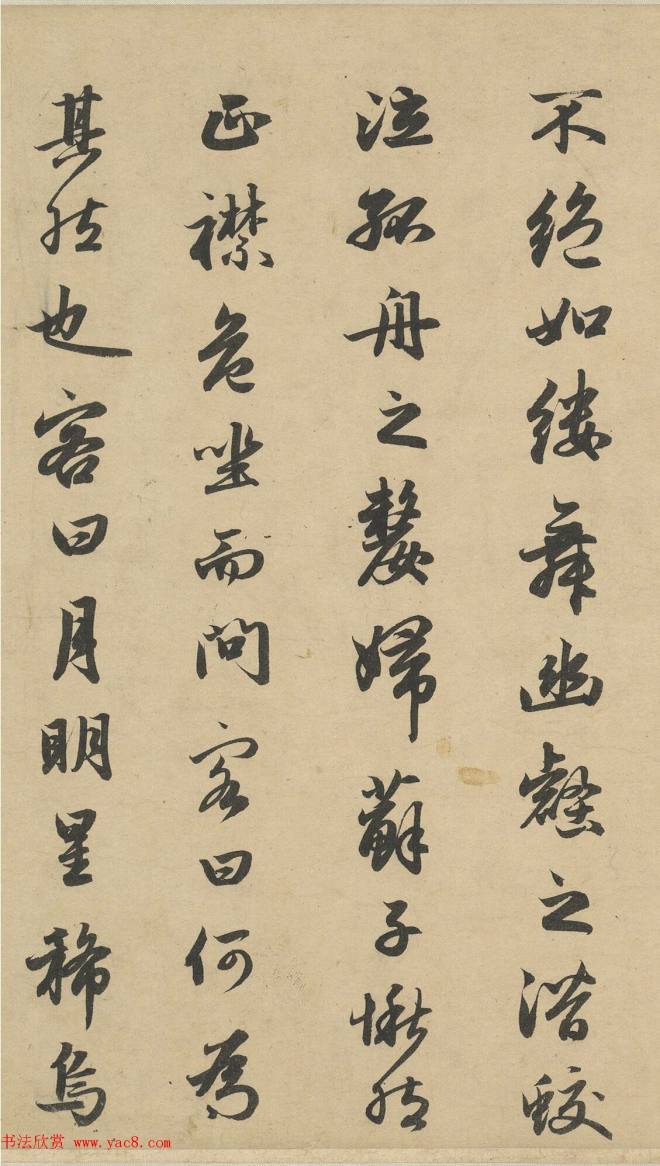 不絕如縷舞幽壑之潛蛟
泣孤舟之嫠婦蘇子愀然
正襟危坐而問客曰何為
其然也客曰月明星稀烏
书法欣赏 www.yac8.com